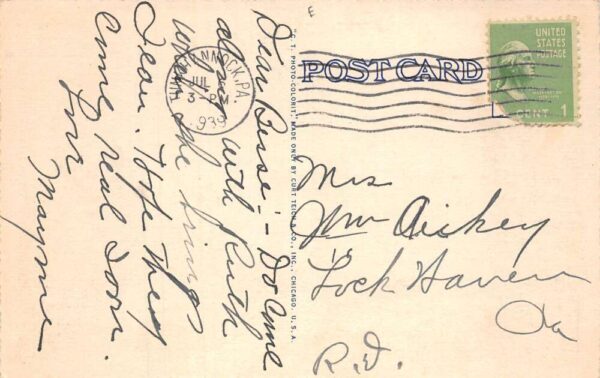 E
POST CARD
UNITED
STATES
POSTAGE
CENT 1
TUNKHANNOCK, PA.
JUL
3-PM
1939
"C. T. PHOTO-COLORIT" MADE ONLY BY CURT TEICH & CO., INC., CHICAGO, U.S.A.
Dear Bessie: - Do come
along with Ruth
when she brings
Jean. Hope they
come real soon.
Love
Mayme
Mrs
Wm Aickey
Lock Haven
Pa
R.D.